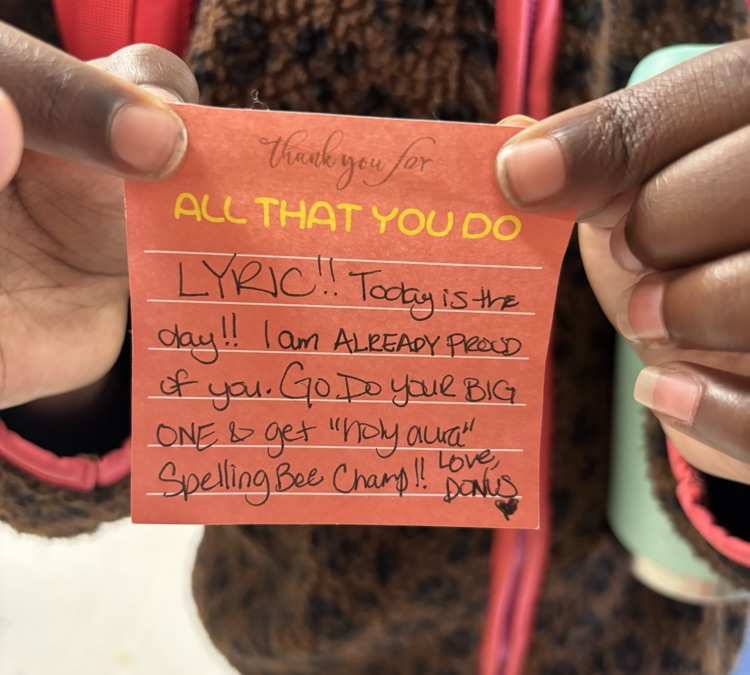 thank you for
ALL THAT YOU DO
LYRIC!! Today is the
day!! I am ALREADY PROUD
of you. Go. Do YOUR BIG
ONE & get "holy aura"
Spelling Bee Champ!! Love,
DONUS